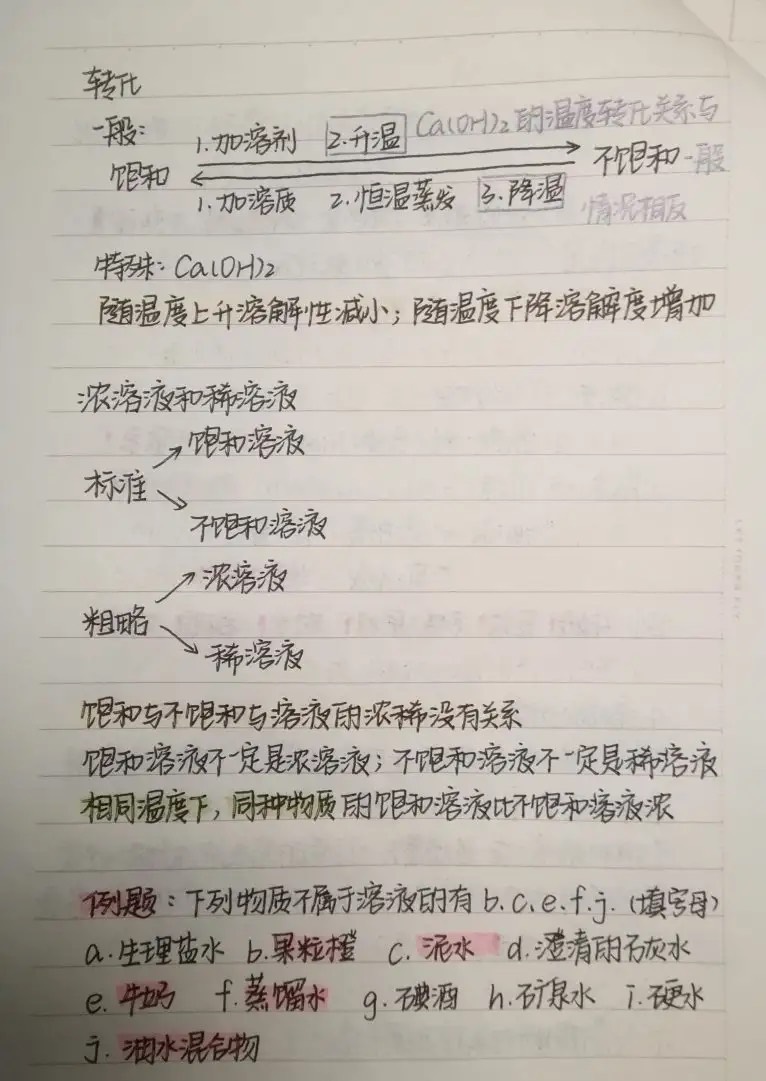 转化
一般:
1.加溶剂 2.升温 Ca(OH)2的温度转化关系与
饱和 不饱和 一般
1.加溶质 2.恒温蒸发 3.降温 情况相反
特殊: Ca(OH)2
随温度上升溶解性减小; 随温度下降溶解度增加
浓溶液和稀溶液
饱和溶液
标准
不饱和溶液
浓溶液
粗略
稀溶液
饱和与不饱和与溶液的浓稀没有关系
饱和溶液不一定是浓溶液; 不饱和溶液不一定是稀溶液
相同温度下, 同种物质的饱和溶液比不饱和溶液浓
例题: 下列物质不属于溶液的有 b.c.e.f.j. (填字母)
a.生理盐水 b.果粒橙 c.泥水 d.澄清的石灰水
e.牛奶 f.蒸馏水 g.碘酒 h.矿泉水 i.硬水
j.油水混合物